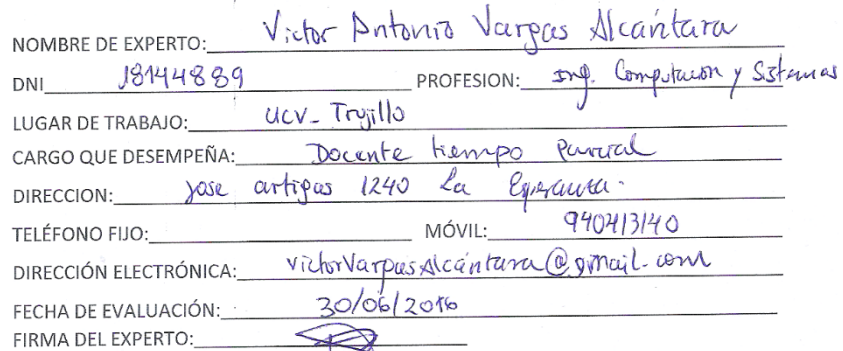 NOMBRE DE EXPERTO: Victor Antonio Vargas Alcántara
DNI 18144889 PROFESION: Ing. Computacion y Sistemas
LUGAR DE TRABAJO: UCV- Trujillo
CARGO QUE DESEMPEÑA: Docente tiempo Parcial
DIRECCION: Jose artigas 1240 La Esperanza.
TELÉFONO FIJO: MÓVIL: 940413140
DIRECCIÓN ELECTRÓNICA: victorVargasAlcántara@gmail.com
FECHA DE EVALUACIÓN: 30/06/2016
FIRMA DEL EXPERTO: